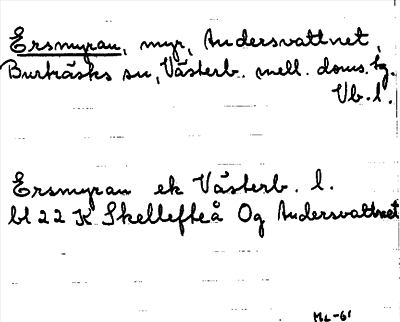 Ersmyran, myr, Andersvattnet,
Burträsks sn, Västerb. mell. doms. tg.
Vb. l.
Ersmyran ek Västerb. l.
bl 22 K Skellefteå Og Andersvattnet
ML-61